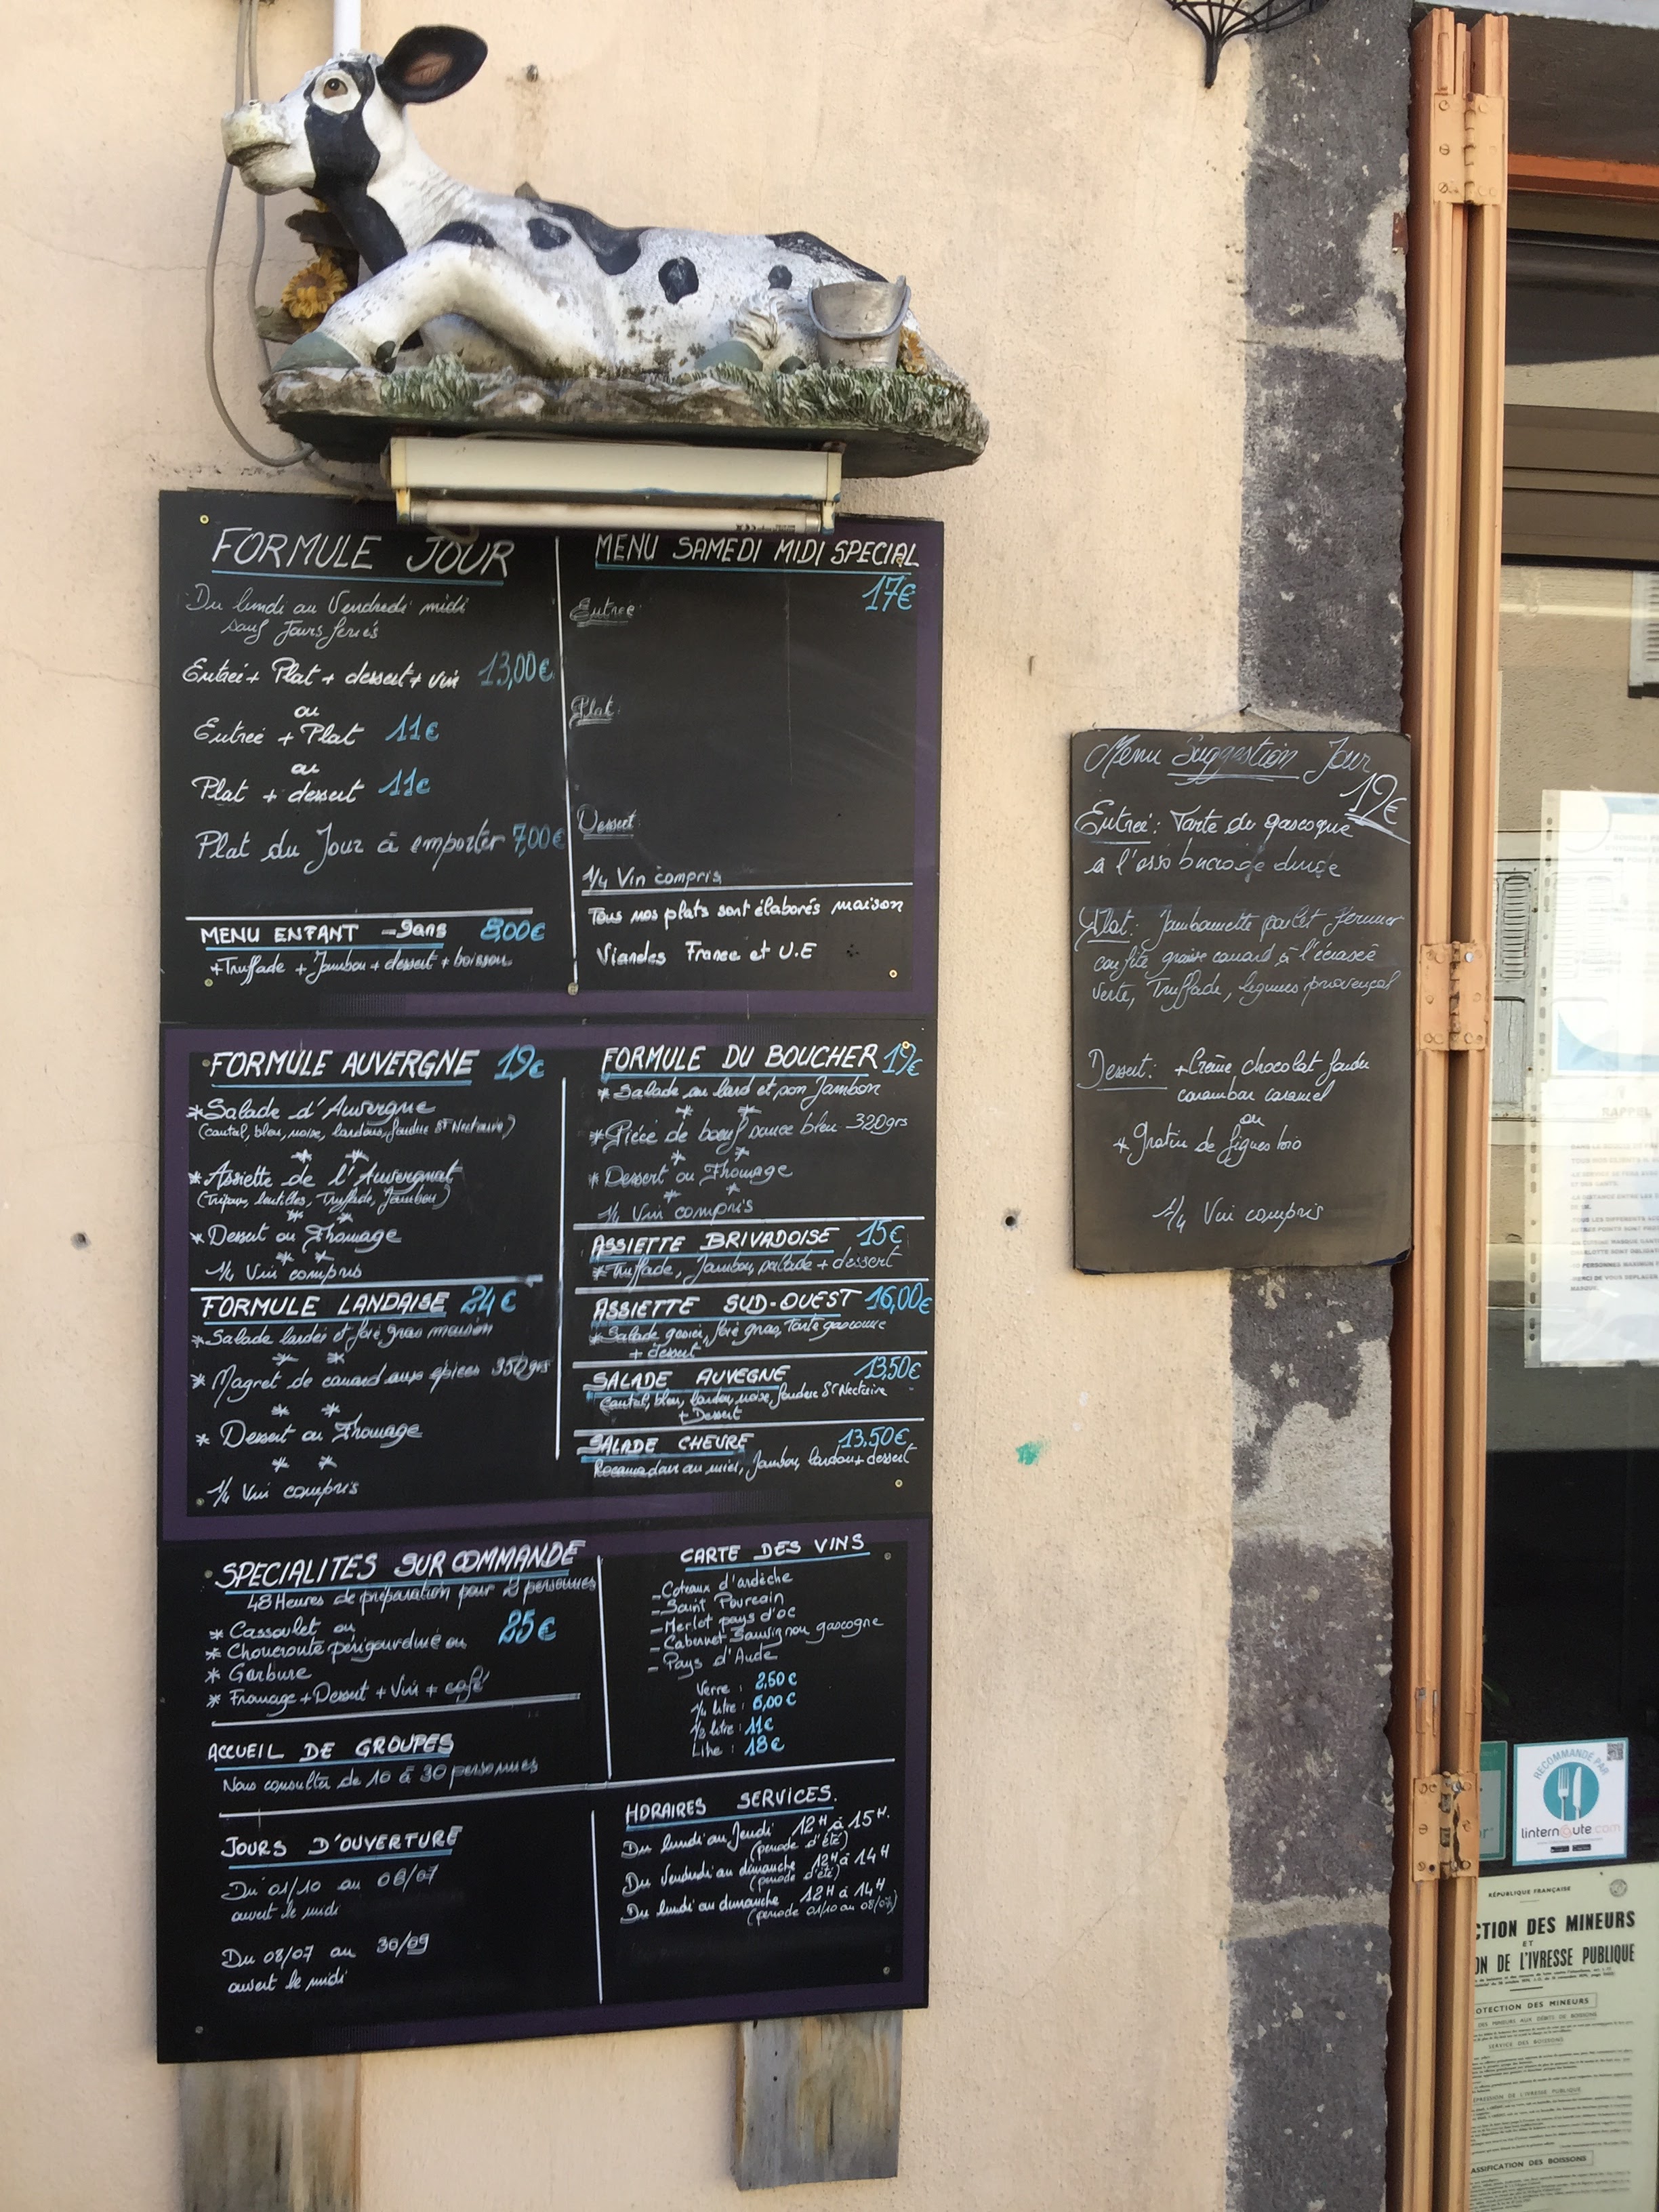 FORMULE JOUR
Du lundi au Vendredi midi
sauf Jours feriés
Entreé + Plat + dessert + vin 13,00€
ou
Entreé + Plat 11€
ou
Plat + dessert 11€
Plat du Jour à emporter 7,00€
MENU ENFANT -9ans 8,00€
+Truffade + Jambon + dessert + boisson
MENU SAMEDI MIDI SPECIAL
17€
Entreé
Plat
Dessert
1/4 Vin compris
Tous nos plats sont élaborés maison
Viandes France et U.E
FORMULE AUVERGNE 19€
*Salade d'Auvergne
(cantal, bleu, noix, lardons, fondue St Nectaire)
* *
*Assiette de l'Auvergnat
(Tripoux, lentilles, Truffade, Jambon)
* *
*Dessert ou Fromage
* *
1/4 Vin compris
FORMULE LANDAISE 24€
*Salade landés et foie gras maison
* *
*Magret de canard aux épices 350grs
* *
* Dessert ou Fromage
* *
1/4 Vin compris
FORMULE DU BOUCHER 19€
* Salade au lard et son Jambon
* *
*Piéce de boeuf sauce bleu 320grs
* *
*Dessert ou Fromage
* *
1/4 Vin compris
ASSIETTE BRIVADOISE 15€
*Truffade, Jambon, salade + dessert
ASSIETTE SUD-OUEST 16,00€
*Salade gesier, foie gras, Tarte gasconne
+ dessert
SALADE AUVEGNE 13,50€
Cantal, bleu, lardon, noix, fondue St Nectaire
+ Dessert
SALADE CHEVRE 13,50€
Rocamadour au miel, Jambon, lardon + dessert
SPECIALITES SUR COMMANDE
48 Heures de préparation pour 2 personnes
* Cassoulet ou 25€
* Choucroute périgourdine ou
* Garbure
* Fromage + Dessert + Vin + café
ACCUEIL DE GROUPES
Nous consulter de 10 à 30 personnes
JOURS D'OUVERTURE
Du 01/10 au 08/07
ouvert le midi
Du 08/07 au 30/09
ouvert le midi
CARTE DES VINS
-Coteaux d'ardèche
-Saint Pourcain
-Merlot pays d'oc
-Cabernet Sauvignon gascogne
- Pays d'Aude
Verre : 2,50€
1/4 litre : 6,00€
1/2 litre : 11€
Litre : 18€
HORAIRES SERVICES
Du lundi au Jeudi 12H à 15H.
(periode d'été)
Du Vendredi au dimanche 12H à 14H
(periode d'été)
Du lundi au dimanche 12H à 14H
(periode 01/10 au 08/07)
Menu Suggestion Jour
19€
Entreé : Tarte de gascogne
à l'osso
Plat : Jambonnette poulet fermier
confite graisse canard à l'écrasée
verte, Truffade, legumes provençal
Dessert : +Crème chocolat fondu
carambar caramel
ou
+ Gratin de figues bio
1/4 Vin compris
RAPPEL
RECOMMANDÉ PAR
linternaute.com
RÉPUBLIQUE FRANÇAISE
CTION DES MINEURS
ET
ON DE L'IVRESSE PUBLIQUE
OTECTION DES MINEURS
DES MINEURS AUX DÉBITS DE BOISSONS
SERVICE DES BOISSONS
EPRESSION DE L'IVRESSE PUBLIQUE
ASSIFICATION DES BOISSONS